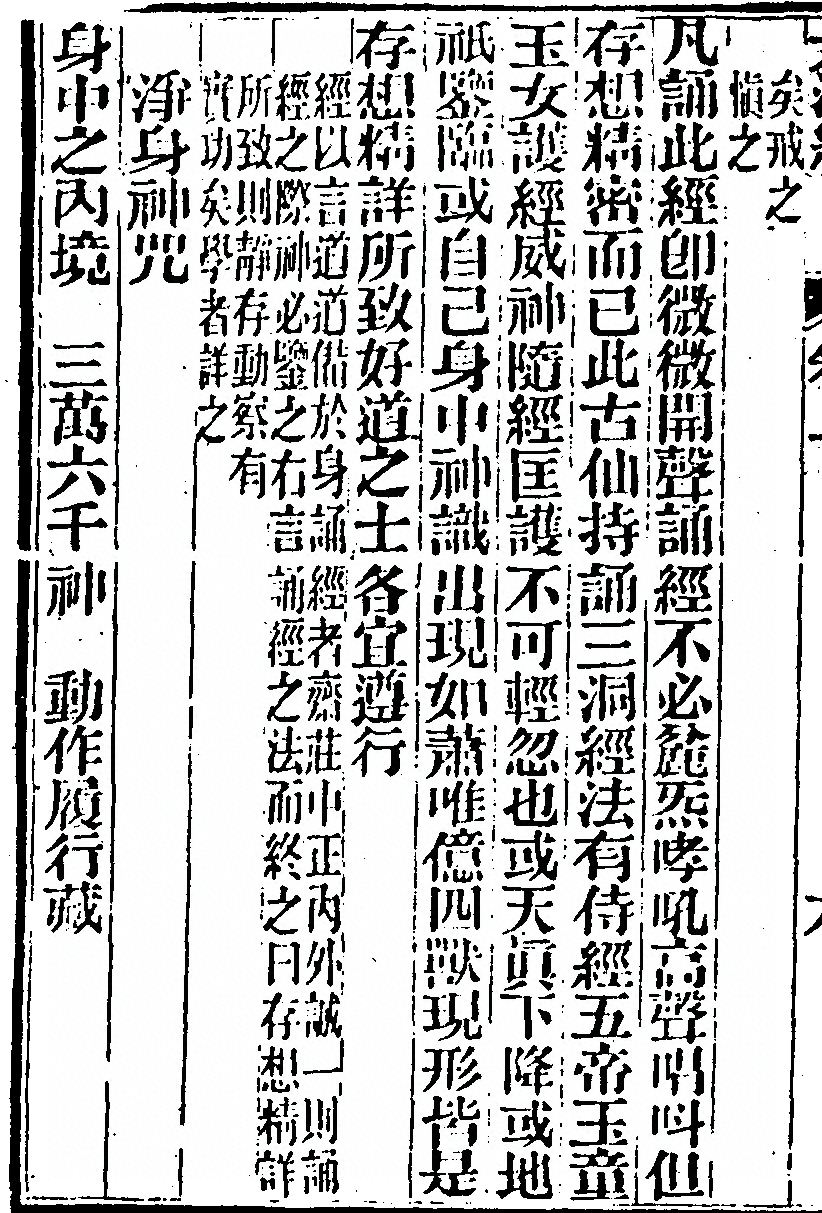 矣戒之
慎之
凡誦此經卽微微開聲誦經不必麄炁哮吼高聲唱叫但
存想精密而已此古仙持誦三洞經法有侍經五帝玉童
玉女護經威神隨經匡護不可輕忽也或天眞下降或地
祇鑒臨或自己身中神識出現如蕭唯億四獸現形皆是
存想精詳所致好道之士各宜遵行
經以言道道備於身誦經者齋莊中正內外誠一則誦
經之際神必鑒之右言誦經之法而終之曰存想精詳
所致則靜存動察有
實功矣學者詳之
淨身神咒
身中之內境　三萬六千神　動作履行藏